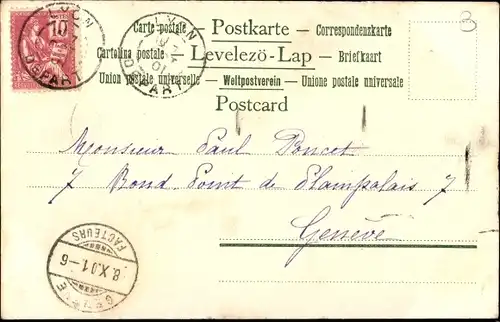 Carte postale — Postkarte — Correspondenzkarte
Cartolina postale — Levelezö-Lap — Briefkaart
Union postale universelle — Weltpostverein — Unione postale universale
Postcard
3
LYON
10
DÉPART
LYON
01
DÉPART
Monsieur Paul Poncet
7 Rond. Pont de Plainpalais 7
Genève
FACTEURS
8.X.01-6